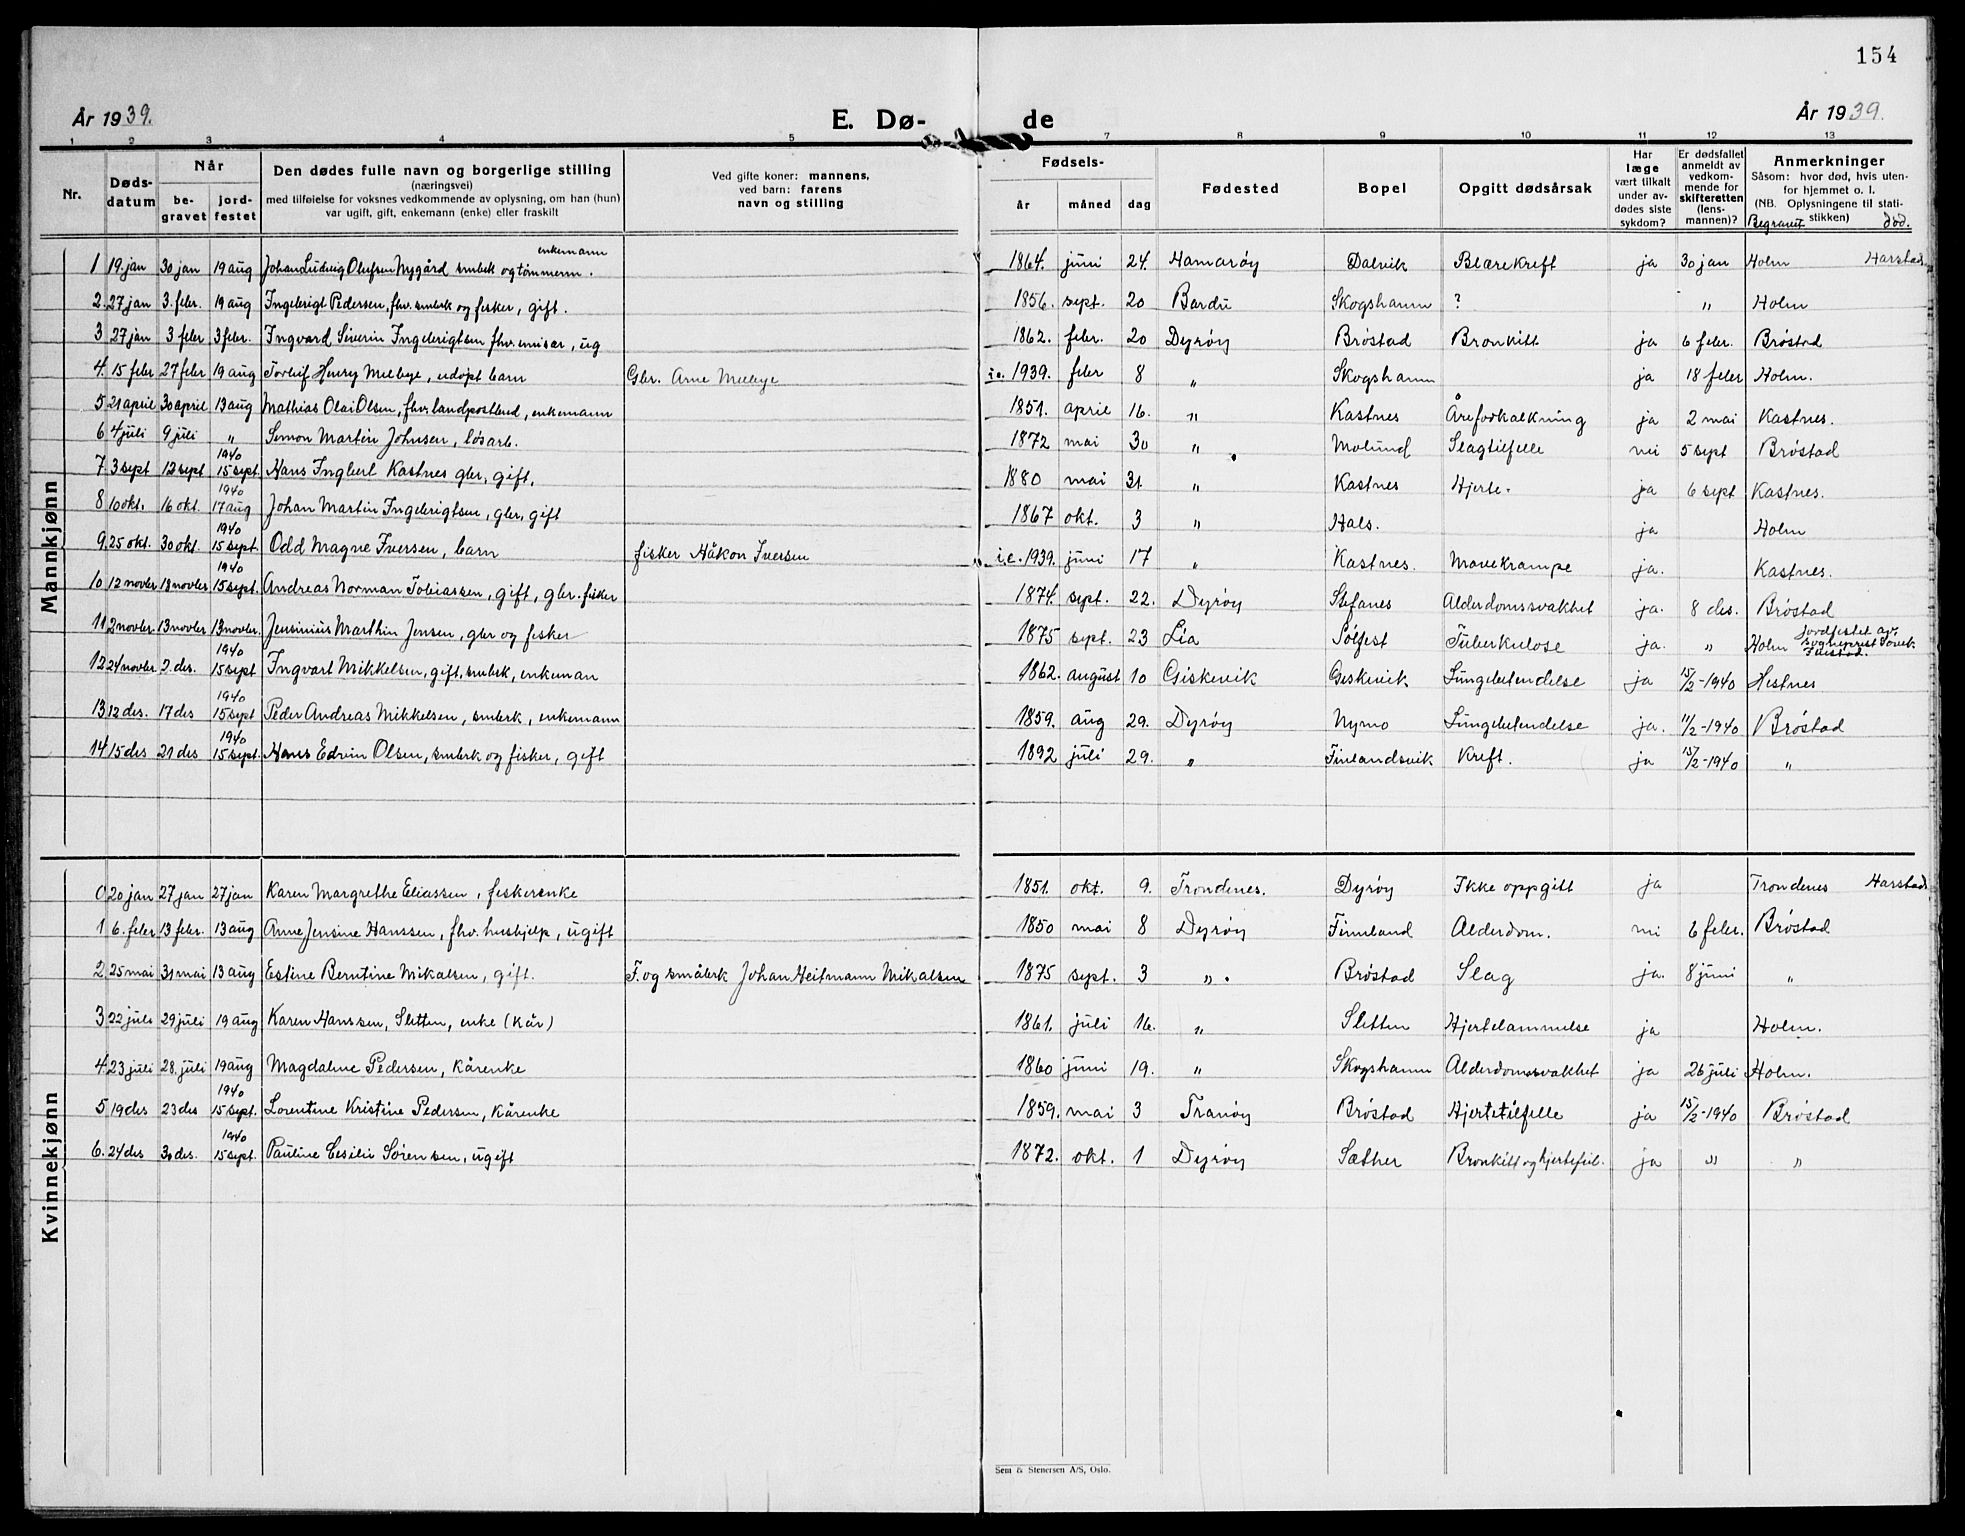 154
År 1939. E. Dø- de År 1939.
1 2 3 4 5 7 8 9 10 11 12 13
Nr. Døds-datum Når be-gravet jord-festet Den dødes fulle navn og borgerlige stilling (næringsvei) med tilføielse for voksnes vedkommende av oplysning, om han (hun) var ugift, gift, enkemann (enke) eller fraskilt Ved gifte koner: mannens, ved barn: farens navn og stilling Fødsels- år måned dag Fødested Bopel Opgitt dødsårsak Har læge vært tilkalt under av-dødes siste sykdom? Er dødsfallet anmeldt av vedkom-mende for skifteretten (lens-mannen)? Anmerkninger Såsom: hvor død, hvis uten-for hjemmet o. l. (NB. Oplysningene til stati-stikken) Begravet død.
Mannkjønn
1 19. jan 30 jan 19 aug Johan Ludvig Olufsen Nygård småbk og tømmerm. enkemann 1864. juni 24. Hamarøy Dalvik Blærekreft ja 30 jan Holm Harstad
2. 27 jan 3. febr. 19 aug Ingebrigt Pedersen, fhv. småbk og fisker, gift. 1856. sept. 20 Bardu Skogshamn ? " Holm
3 27 jan 3 febr 3 febr. Ingvard Siverin Ingebrigtsen fhv. emisær, ug 1862. febr. 20 Dyrøy Brøstad Bronkitt ja 6 febr. Brøstad
4. 15 febr 27 febr 19 aug Torleif Henry Melbye, udøpt barn Gbr. Arne Melbye i.e. 1939. febr 8 " Skogshamn ja 18 febr Holm.
5 21 april 30 april 13 aug Mathias Olai Olsen, fhv. landpostbud, enkemann 1851. april 16. " Kastnes Åreforkalkning ja 2 mai Kastnes.
6 4 juli 9 juli " Simon Martin Johnsen, løsarb. 1872 mai 30 " Molund Slagtilfelle nei 5 sept Brøstad
7. 3 sept 12 sept 1940 15 sept. Hans Ingbert Kastnes gbr, gift. 1880 mai 31. " Kastnes Hjerte. ja 6 sept Kastnes.
8 10 okt. 16 okt. 1940 17 aug Johan Martin Ingebrigtsen, gbr, gift 1867 okt. 3 " Hals. ja Holm
9. 25 okt. 30 okt. 1940 15 sept. Odd Magne Iversen, barn fisker Håkon Iversen i.e. 1939. juni 17 " Kastnes. Mavekrampe ja. Kastnes.
10 12 novbr 18 novbr 1940 15 sept. Andreas Norman Tobiassen, gift, gbr. fisker 1874. sept. 22. Dyrøy Stefanes Alderdomssvakhet ja. 8 des. Brøstad
11 2 novbr. 13 novbr 13 novbr. Jensinius Marthin Jensen, gbr og fisker 1875 sept. 23 Lia Solfest Tuberkulose ja. " Holm jordfestet av. sogneprest
12 24 novbr 2. des. 1940 15 sept Ingvart Mikkelsen, gift, småbk, enkeman 1862. august 10 Giskevik Geskevik Lungebetendelse ja 15/2-1940 Hestnes
13 12 des. 17 des 1940 15 sept Peder Andreas Mikkelsen, småbk, enkemann 1859. aug 29. Dyrøy Nymo Lungebetendelse ja. 11/2-1940 Brøstad
14 15 des 21 des 1940 15 sept. Hans Edvin Olsen, småbk og fisker, gift 1892 juli 29. " Finlandsvik Kreft. ja 15/2-1940 "
Kvinnekjønn
0 20 jan 27 jan 27 jan Karen Margrethe Eliassen, fiskerenke 1851. okt. 9. Trondenes. Dyrøy Ikke oppgitt ja Trondenes Harstad
1 6. febr 13 febr. 13 aug Anne Jensine Hanssen, fhv. hushjelp, ugift 1850 mai 8 Dyrøy Finnland Alderdom. nei 6 febr. Brøstad
2 25 mai 31 mai 13 aug Estine Berntine Mikalsen, gift. F. og småbrk Johan Heitmann Mikalsen 1875 sept. 3 ". Brøstad Slag ja. 8 juni "
3 22 juli 29 juli 19 aug Karen Hanssen, Sletten, enke (kår) 1861. juli 16. " Sletten Hjertelammelse ja Holm.
4. 23 juli 28. juli 19 aug Magdalene Pedersen, kårenke 1860 juni 19. " Skogshamn Alderdomssvakhet ja 26 juli Holm.
5 19 des 23 des 1940 15 sept. Lorentine Kristine Pedersen, kårenke 1859. mai 3 Tranøy Brøstad Hjertetilfelle ja 15/2-1940 Brøstad
6. 24 des 30 des. 1940 15 sept. Pauline Cesilie Sørensen, ugift 1872. okt. 1 Dyrøy Sæther Bronkitt og hjertefeil. ja " "
Sem & Stenersen A/S, Oslo.